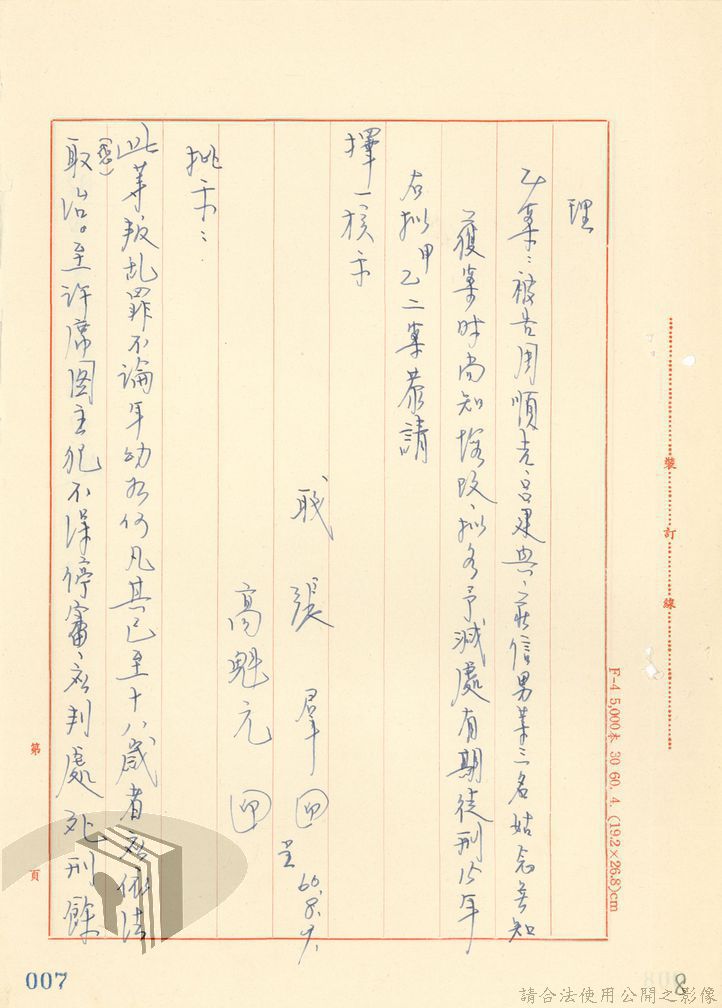 理
乙案:被告周順吉、呂建興、莊信男等三名姑念無知
獲案時尚知悔改,擬各予減處有期徒刑15年
右擬甲乙二案恭請
擇一核示
職 張 羣 印
高魁元 印 呈 60.8.9.
批示:
此等叛乱罪不論年幼為何凡其已至十八歲者應依法
(懲)
取治。至許席圖主犯不得停審、應判處死刑餘
第 頁
裝 訂 線
F-4 5,000本 30 60. 4. (19.2×26.8)cm
007
8
請合法使用公開之影像